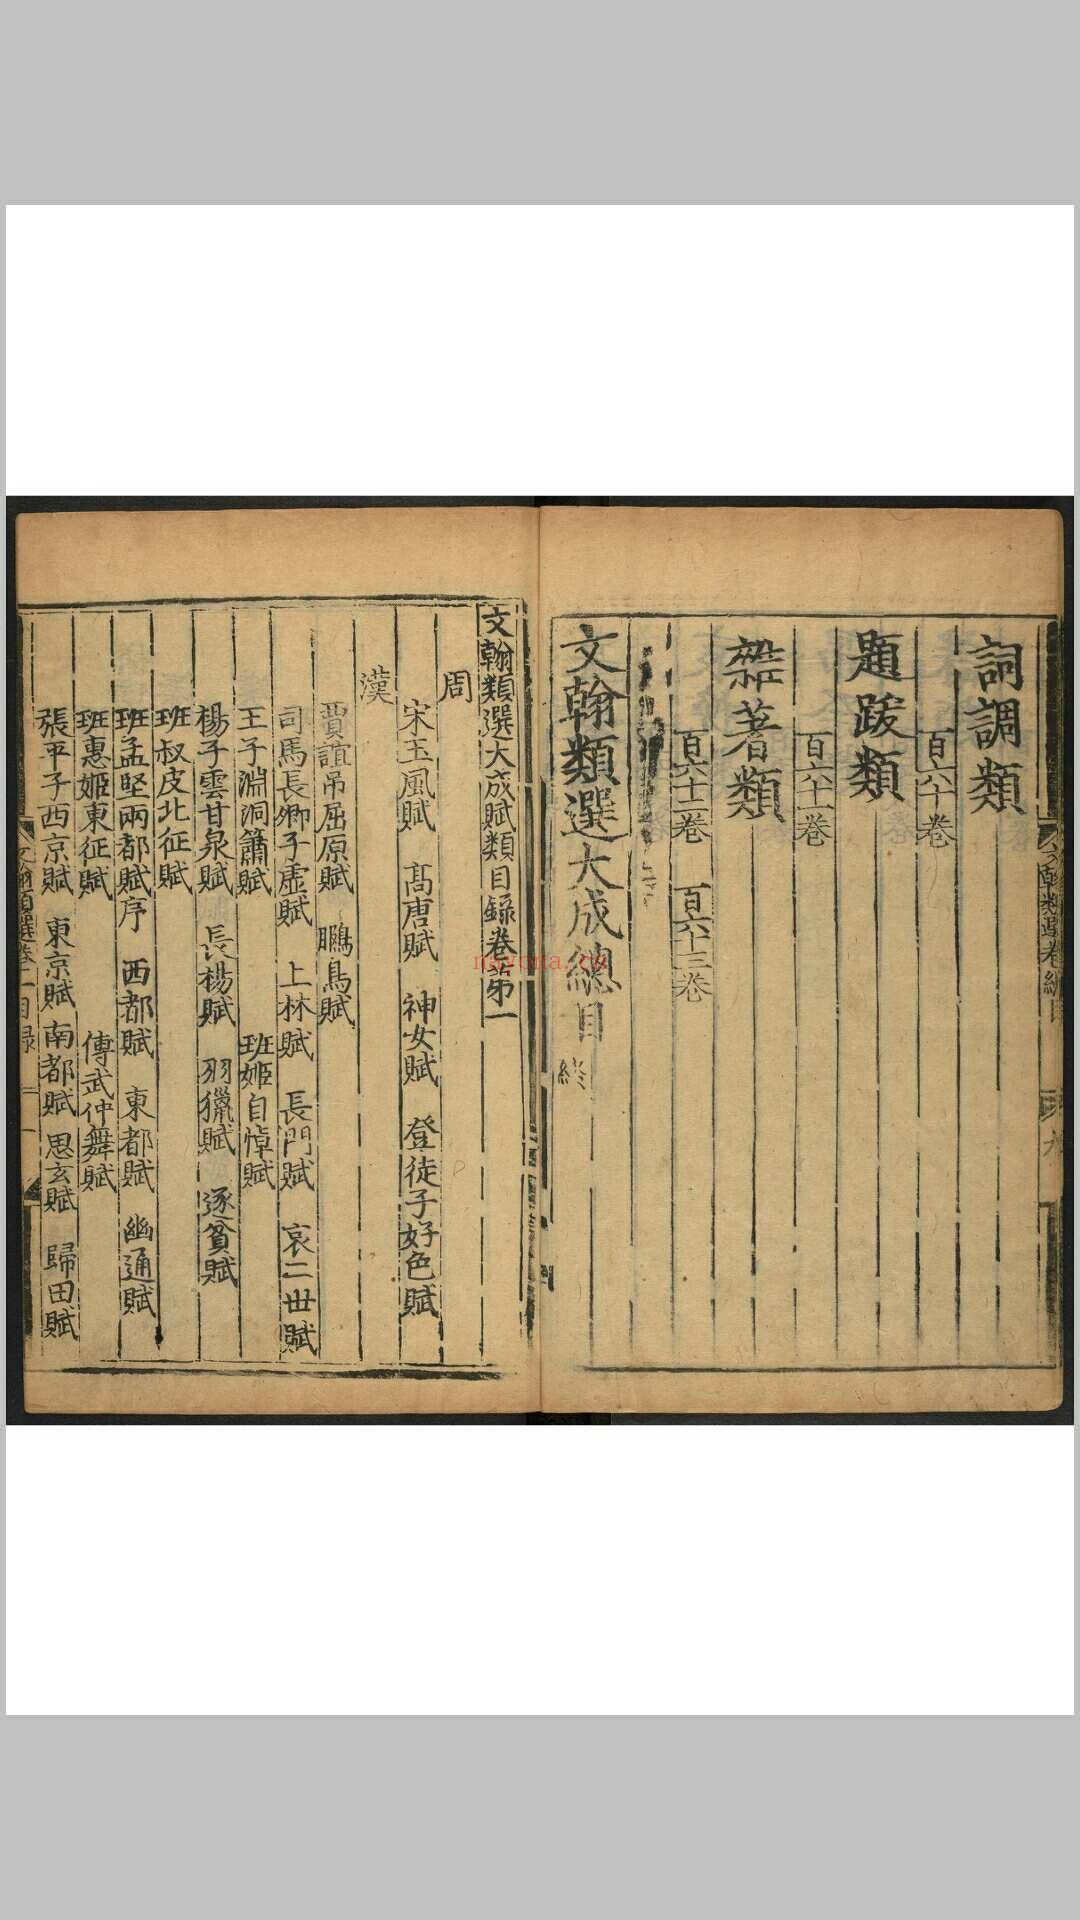 詞調類
百六十卷
題跋類
百六十一卷
雜著類
百六十二卷 百六十三卷
文翰類選大成總目 終
文翰類選大成賦類目錄卷第一
周
宋玉風賦 高唐賦 神女賦 登徒子好色賦
漢
賈誼吊屈原賦 鵩鳥賦
司馬長卿子虛賦 上林賦 長門賦 哀二世賦
王子淵洞簫賦 班姬自悼賦
楊子雲甘泉賦 長楊賦 羽獵賦 逐貧賦
班叔皮北征賦
班孟堅兩都賦序 西都賦 東都賦 幽通賦
班惠姬東征賦 傅武仲舞賦
張平子西京賦 東京賦 南都賦 思玄賦 歸田賦